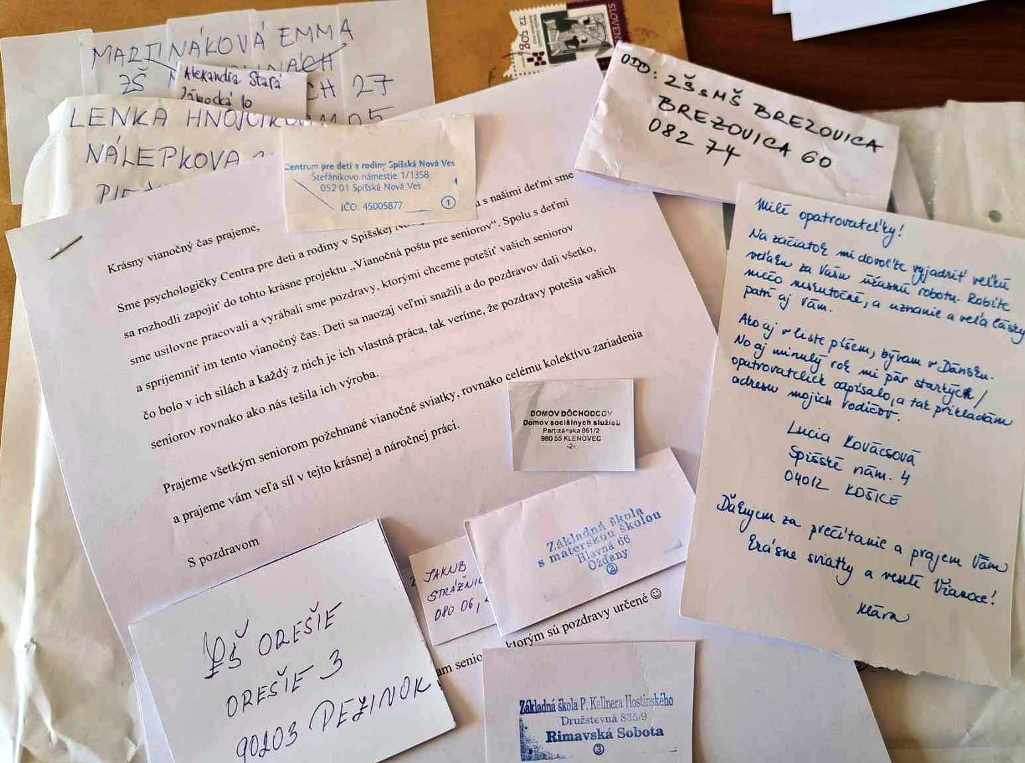 MARTINÁKOVÁ EMMA
ZŠ
27
Alexandra Stará
LENKA
NÁLEPKOVA
Centrum pre deti a rodiny Spišská Nová Ves
Štefánikovo námestie 1/1358
052 01 Spišská Nová Ves
IČO: 45005877
1
ODD: ZŠ s MŠ BREZOVICA
BREZOVICA 60
082 74
Krásny vianočný čas prajeme,
Sme psychologičky Centra pre deti a rodiny v Spišskej s našimi deťmi sme
sa rozhodli zapojiť do tohto krásne projektu „Vianočná pošta pre seniorov“. Spolu s deťmi
sme usilovne pracovali a vyrábali sme pozdravy, ktorými chceme potešiť vašich seniorov
a spríjemniť im tento vianočný čas. Deti sa naozaj veľmi snažili a do pozdravov dali všetko,
čo bolo v ich silách a každý z nich je ich vlastná práca, tak veríme, že pozdravy potešia vašich
seniorov rovnako ako nás tešila ich výroba.
Prajeme všetkým seniorom požehnané vianočné sviatky, rovnako celému kolektívu zariadenia
a prajeme vám veľa síl v tejto krásnej a náročnej práci.
S pozdravom
ktorým sú pozdravy určené ☺
Milé opatrovateľky!
Na začiatok mi dovoľte vyjadriť veľkú
vďaku za Vašu úžasnú robotu. Robíte
niečo neskutočné, a uznanie a veľa lásky
patrí aj vám.
Ako aj v liste píšem, bývam v Dánsku.
No aj minulý rok mi pár starkých/
opatrovateliek odpísalo, a tak prikladám
adresu mojich rodičov.
Lucia Kovácsová
Spišské nám. 4
04012 KOŠICE
Ďakujem za prečítanie a prajem Vám
krásne sviatky a veselé Vianoce!
Klára
DOMOV DÔCHODCOV
Domov sociálnych služieb
Partizánska 861/2
980 55 KLENOVEC
-2-
JAKUB
080 06,
Základná škola
s materskou školou
Hlavná 66
Ožďany
2
ZŠ OREŠIE
OREŠIE 3
90203 PEZINOK
Základná škola P. Kellnera Hostinského
Družstevná 835/9
Rimavská Sobota
3